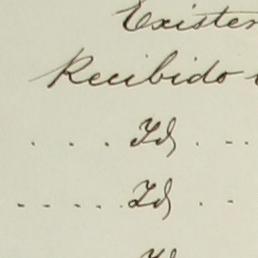 Existen
Recibido
. . . . Id . . .
. . . . . . Id . .
Id